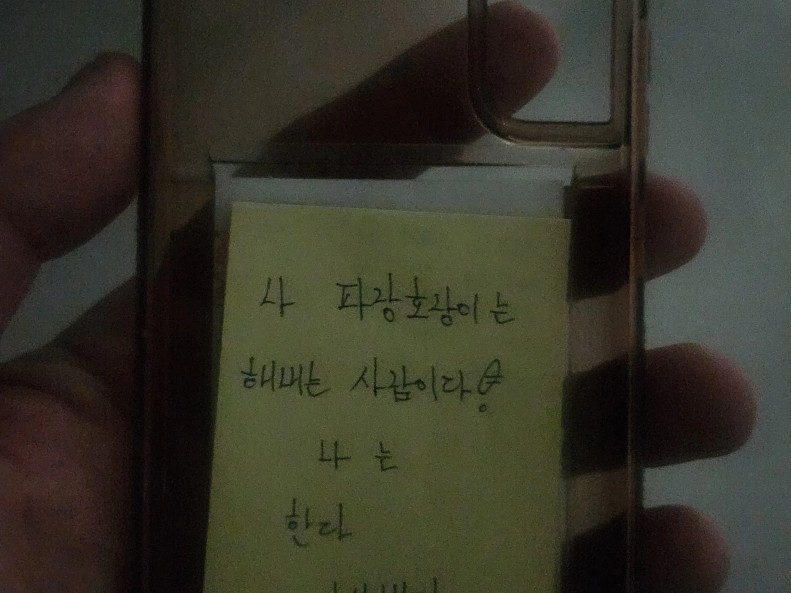 나 파랑호랑이는
해내는 사람이다
나는
한다